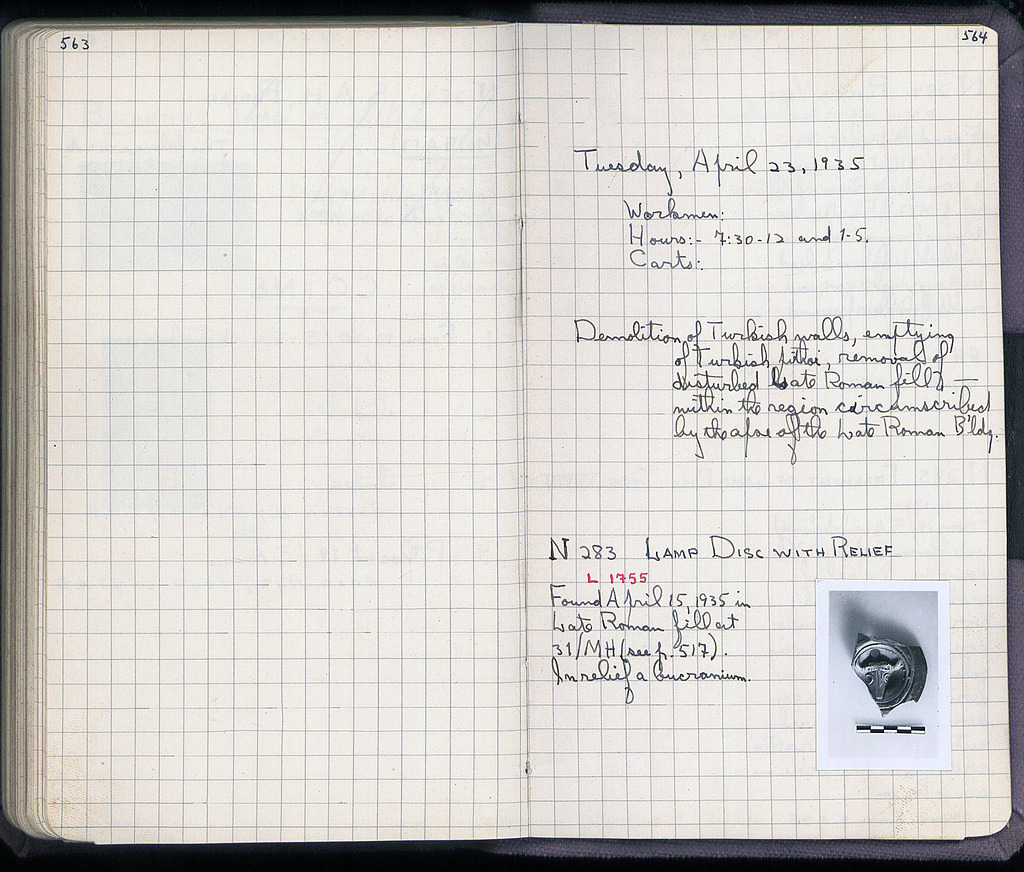 563
564
Tuesday, April 23, 1935
Workmen:
Hours:- 7:30-12 and 1-5.
Carts:
Demolition of Turkish walls, emptying
of Turkish pithoi, removal of
disturbed Late Roman fill —
within the region circumscribed
by the apse of the Late Roman B'ldg.
N 283 LAMP DISC WITH RELIEF
L 1755
Found April 15, 1935 in
Late Roman fill at
31/MH (see p. 517).
In relief a bucranium.